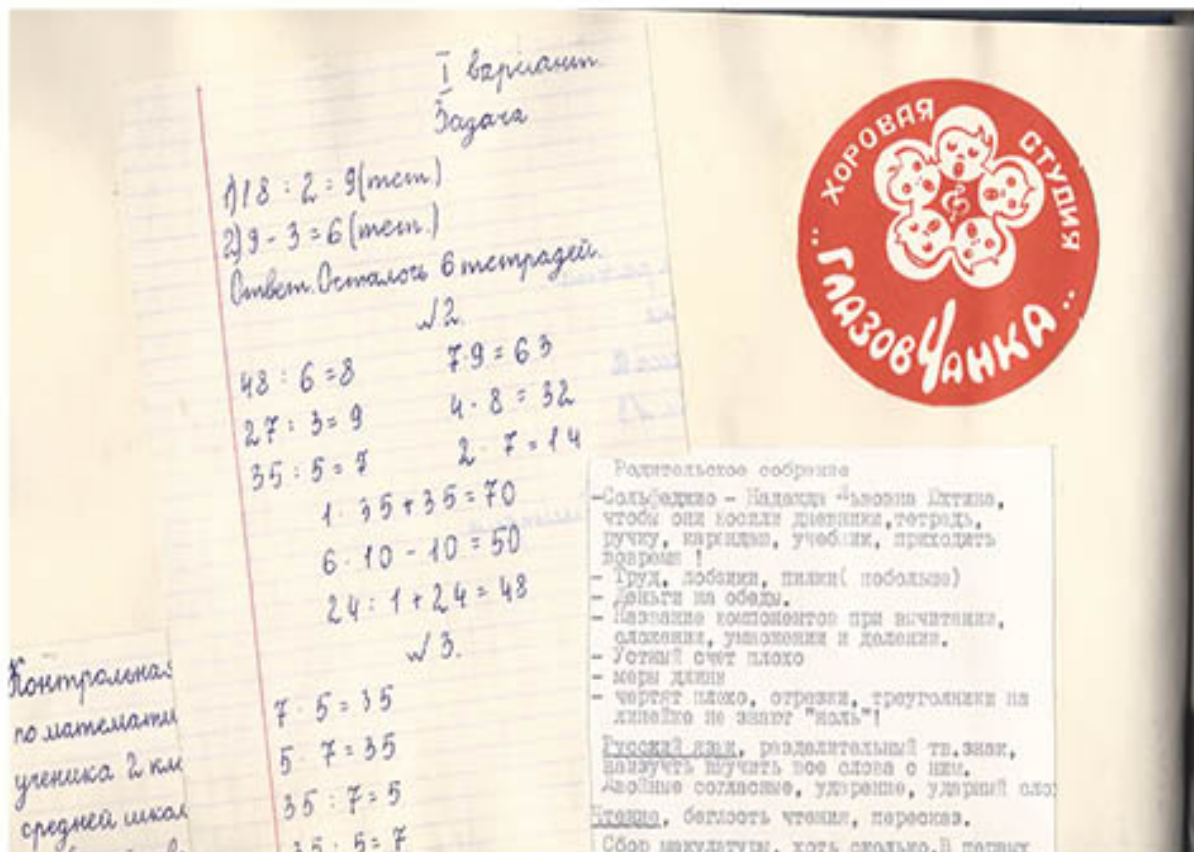 I вариант.
Задача
1) 18 : 2 = 9 (тет.)
2) 9 - 3 = 6 (тет.)
Ответ. Осталось 6 тетрадей.
№2.
48 : 6 = 8 7·9 = 63
27 : 3 = 9 4·8 = 32
35 : 5 = 7 2·7 = 14
1·35+35=70
6·10-10=50
24:1+24=48
№3.
7·5=35
5·7=35
35:7=5
35:5=7
Контрольная
по математи
ученика 2 кл
средней школ
ХОРОВАЯ СТУДИЯ
"ГЛАЗОВЧАНКА"
Родительское собрание
-Сольфеджио - Надежда Львовна
чтобы они носили дневники,тетрадь,
ручку, карандаш, учебник, приходить
вовремя !
- Труд, лобзики, пилки( побольше)
- Деньги на обеды.
- Название компонентов при вычитании,
сложении, умножении и делении.
- Устный счет плохо
- меры длины
- чертят плохо, отрезки, треугольники на
линейке не знают "ноль"!
Русский язык, разделительный тв.знак,
наизусть выучить все слова с ним.
Двойные согласные, ударение, ударный сло
Чтение, беглость чтения, пересказ.
Сбор макулатуры, хоть сколько.В первых